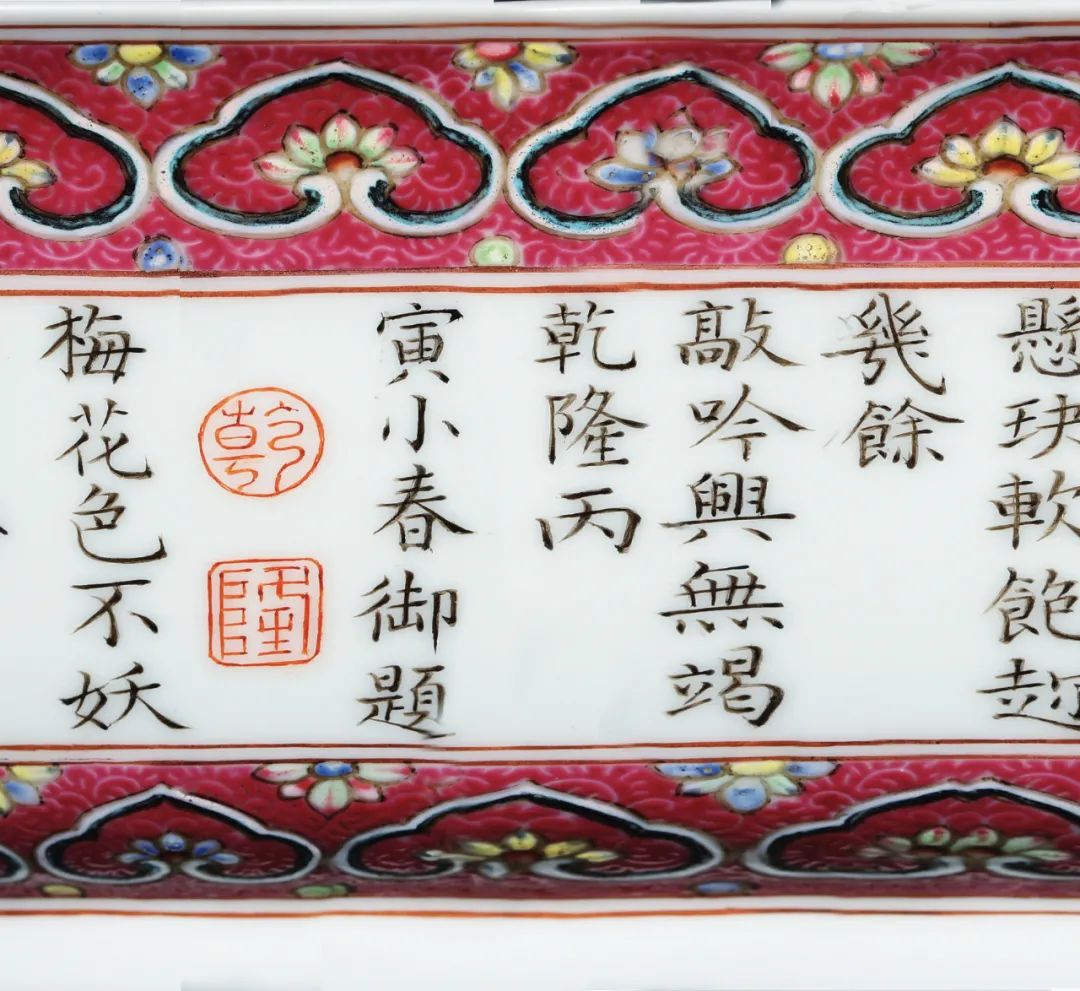 懸玦軟飽趂
幾餘
敲吟興無竭
乾隆丙
寅小春御題
乾
隆
梅花色不妖